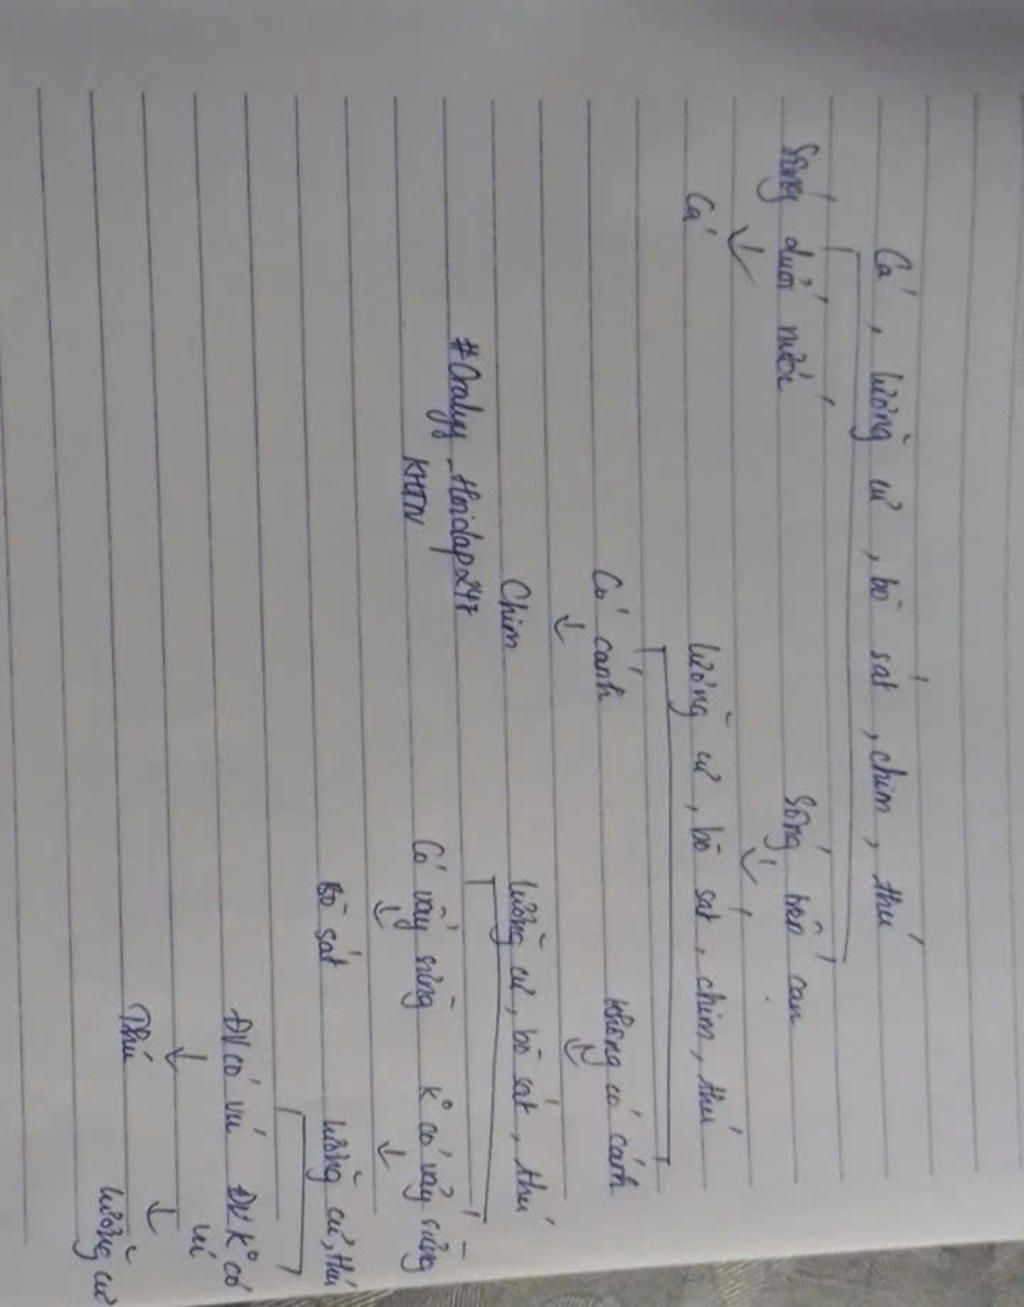 Cá, lưỡng cư, bò sát, chim, thú
Sống dưới nước
Sống trên cạn
Cá
lưỡng cư, bò sát, chim, thú
Có cánh
Không có cánh
Chim
lưỡng cư, bò sát, thú
#Oralyy_Hoidap247
KHTN
Có vảy sừng
K° có vảy sừng
Bò sát
lưỡng cư, thú
ĐV có vú
ĐV K° có
vú
Thú
lưỡng cư